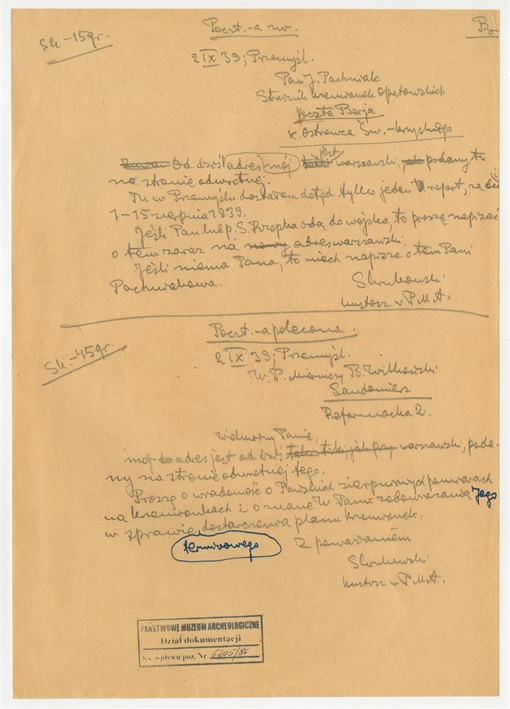 Poczt.-a zw.
Sk-15gr.
2 IX 39; Przemyśl.
Pan J. Pachniak
Strażnik krzemionek opatowskich
poczta Borja
k. Ostrowca Św.-krzyskiego
Od dziś adres mój jest warszawski, podany tu
na stronie odwrotnej.
Tu w Przemyślu dostałem dotąd tylko jeden raport, za
1-15 sierpnia 1939.
Jeśli Pan lub p. S. Rzepka odą do wojska, to proszę napisać
o tem zaraz na nowy adres warszawski.
Jeśli niema Pana, to niech napisze o tem Pani
Pachniakowa.
Skrukowski
kustosz w P.M.A.
Poczt.-a polecona.
Sk.-45gr.
2 IX 39; Przemyśl.
W. P. Mierniczy B. Witkowski
Sandomierz
Reformacka 2.
Wielmożny Panie,
mój adres jest od dziś warszawski, poda-
ny na stronie odwrotnej tego.
Proszę o wiadomość o Pańskich sierpniowych pomiarach
na krzemionkach i o znane W. Panu zobowiązania Jego
w sprawie dostarczenia planu krzemionek.
terminowego
Z poważaniem
kustosz w P.M.A.
PAŃSTWOWE MUZEUM ARCHEOLOGICZNE
Dział dokumentacji
Ks. wpływu poz. Nr 6605/86